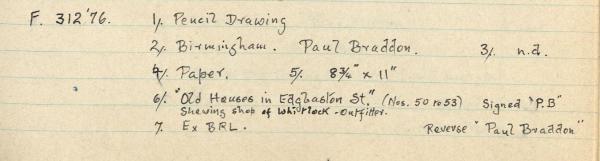 F. 312'76. 1/. Pencil Drawing
2/. Birmingham. Paul Braddon. 3/. n.d.
4/. Paper. 5/. 8¾" x 11"
6/. "Old Houses in Edgbaston St." (Nos. 50 to 53) Signed "P.B"
Shewing shop of Whitlock - Outfitter.
7. Ex BRL. Reverse "Paul Braddon"